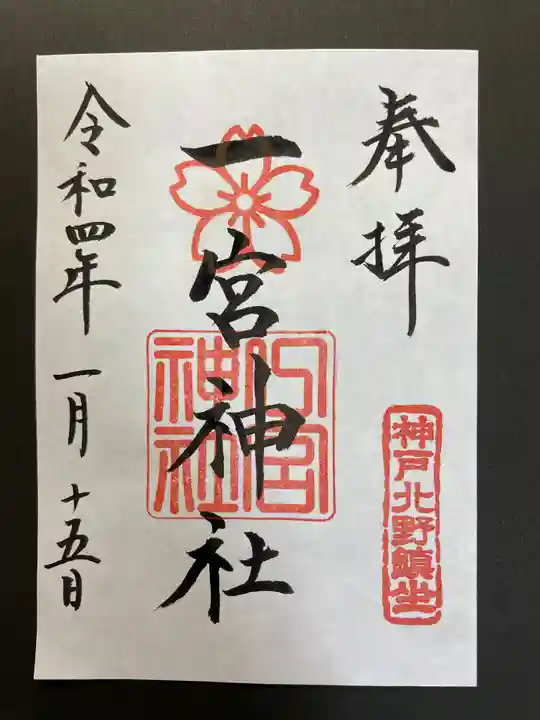 奉拝
神戸北野鎮坐
一宮神社
神社
令和四年一月十五日